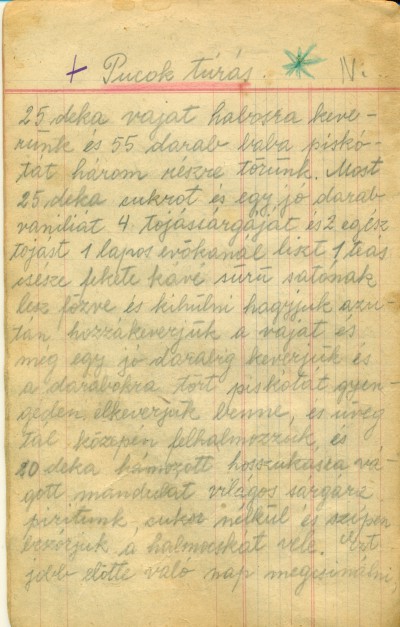 + Pucok túrás. N:
25 deka vajat habosra keve-
rünk és 55 darab baba piskó-
tát három részre törünk. Most
25 deka sukrot és egy jó darab
vaniliát 4 tojássárgáját és 2 egész
tojást 1 lapos evőkanál liszt 1 teás
csésze fekete kávé sűrű
lesz főzve és kihülni hagyjuk azu-
tán hozzákeverjük a vaját és
meg egy jó darabig keverjük és
a darabokra tört piskótát gyen-
géden elkeverjük benne, és üveg
tál közepén felhalmozzuk, és
20 deka hámozott hosszukásra vá-
gott mandulát világos sárgára
piritunk, cukor nélkül és szépen
beszórjuk a halmocskát vele. Ezt
jobb előtte való nap megcsinálni,